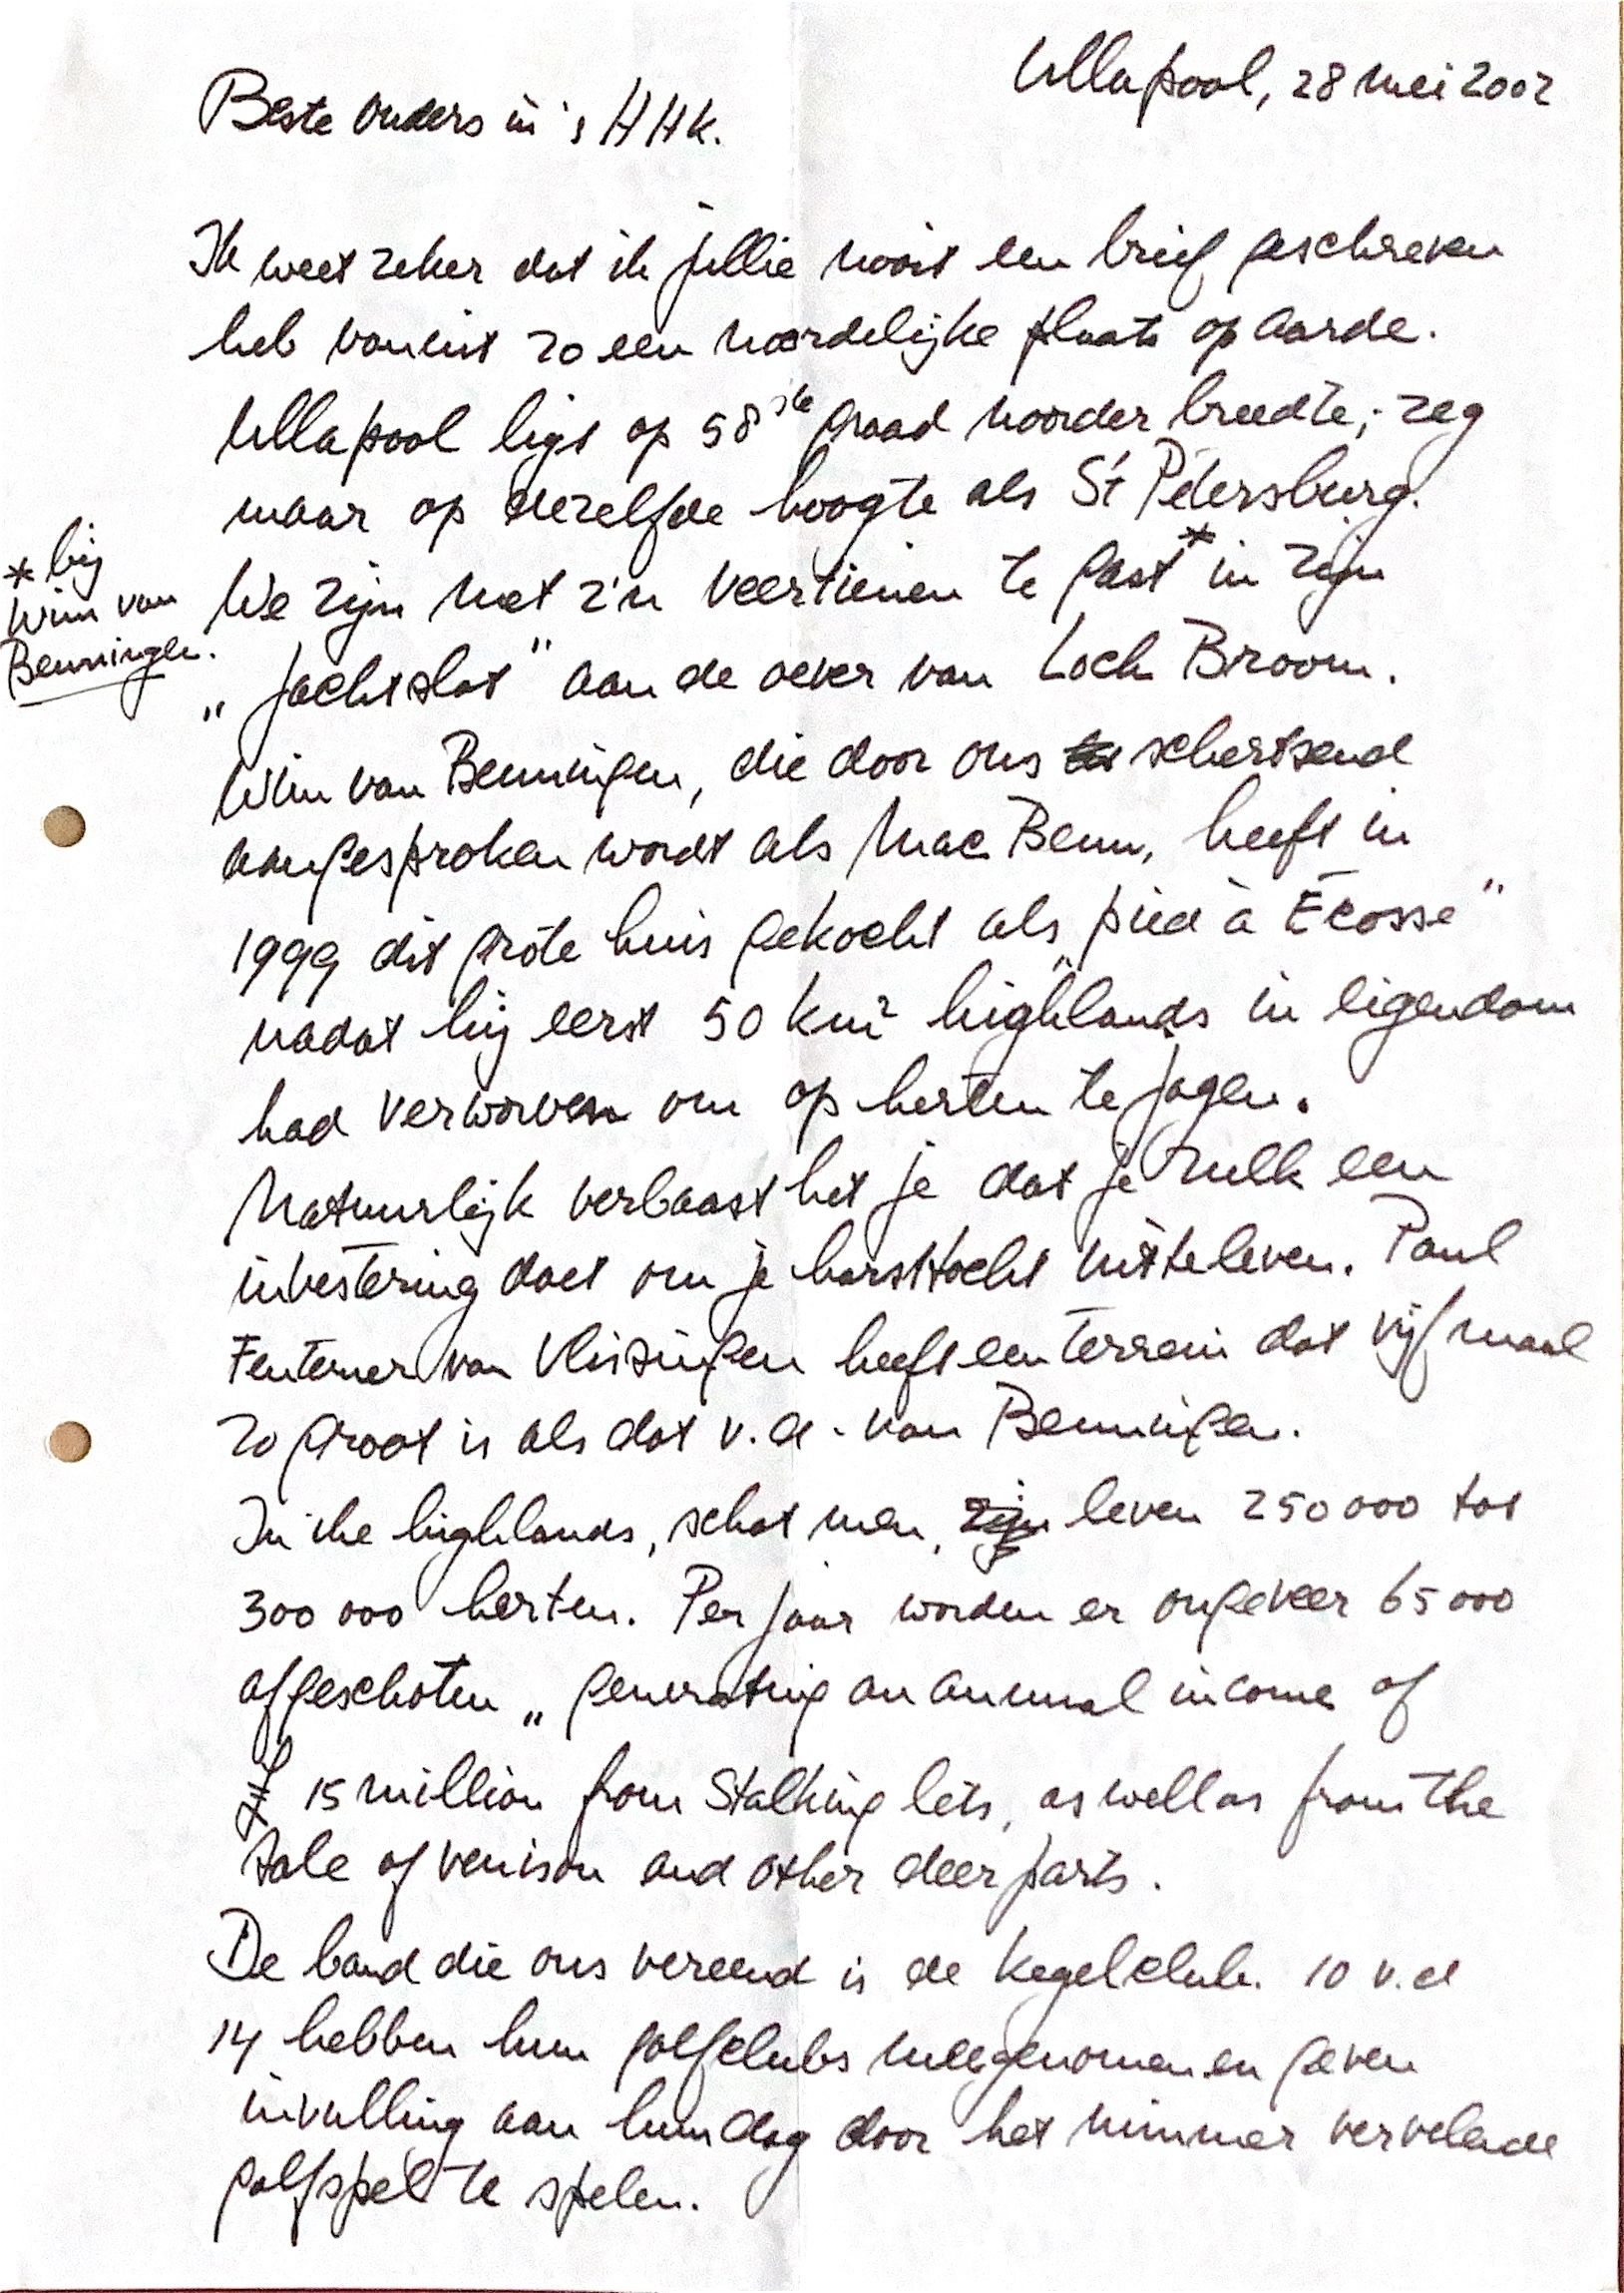 Ullapool, 28 mei 2002
Beste Ouders in 's HHK.
Ik weet zeker dat ik jullie nooit een brief geschreven
heb vanuit zo een noordelijke plaats op aarde.
Ullapool ligt op 58ste graad noorder breedte; zeg
maar op dezelfde hoogte als St Petersburg.
We zijn met z'n veertienen te gast* in zijn
* bij
Wim van
Benningen.
„Jachtslot" aan de oever van Loch Broom.
Wim van Benningen, die door ons schertsend
aangesproken wordt als Mac Benn, heeft in
1999 dit grote huis gekocht als „pied à Écosse"
nadat hij eerst 50 km² highlands in eigendom
had verworven om op herten te jagen.
Natuurlijk verbaast het je dat je zulk een
investering doet om je hartstocht uitteleven. Paul
Fentener van Vlissingen heeft een terrein dat vijf maal
zo groot is als dat v.d. van Benningen.
In the highlands, schat men, leven 250 000 tot
300 000 herten. Per jaar worden er ongeveer 65 000
afgeschoten „generating an annual income of
£ 15 million from Stalking lets, as well as from the
sale of venison and other deer parts.
De band die ons vereend is de kegelclub. 10 v.d
14 hebben hun golfclubs meegenomen en geven
invulling aan hun dag door het nimmer vervelende
golfspel te spelen.